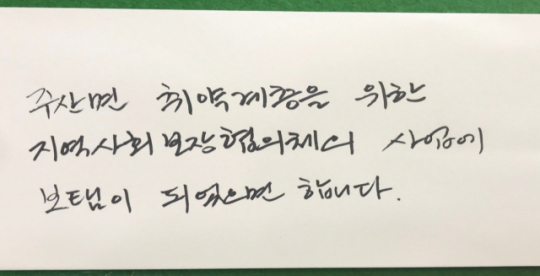 주산면 취약계층을 위한
지역사회보장협의체의 사업에
보탬이 되었으면 합니다.